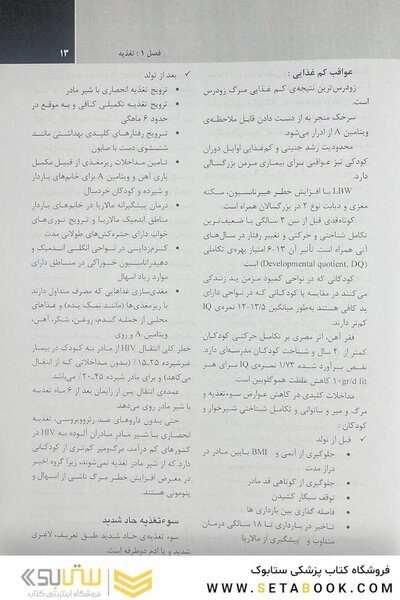 فصل ۱ : تغذیه
۱۳
عواقب کم غذایی :
زودرس‌ترین نتیجه‌ی کم غذایی مرگ زودرس
است.
سرخک منجر به از دست دادن قابل ملاحظه‌ی
ویتامین A از ادرار می‌شود.
محدودیت رشد جنینی و کم‌غذایی اوایل دوران
کودکی نیز عواقبی برای بیماری مزمن بزرگسالی
دارد.
LBW با افزایش خطر هیپرتانسیون، سکته
مغزی و دیابت نوع ۲ در بزرگسالان همراه است.
کوتاه‌قدی قبل از سن ۳ سالگی با ضعیف‌ترین
تکامل شناختی و حرکتی و تغییر رفتار در سال‌های
آتی همراه است. تأثیر آن ۱۳-۶ امتیاز بهره‌ی تکاملی
(Developmental quotient, DQ) است.
کودکانی که در نواحی کمبود مزمن ید زندگی
می‌کنند در مقایسه با کودکانی که در نواحی دارای
ید کافی هستند به‌طور میانگین ۱۳/۵-۱۲ نمره‌ی IQ
کم‌تر دارند.
فقر آهن، اثر مضری بر تکامل حرکتی کودکان
کمتر از ۴ سال و شناخت کودکان مدرسه‌ای دارد.
نقص برآورد شده ۱/۷۳ نمره‌ی IQ برای هر
۱۰gr/d lit کاهش غلظت هموگلوبین است.
مداخلات کلیدی در کاهش عوارض سوءتغذیه و
مرگ و میر و ناتوانی و تکامل شناختی شیرخوار و
کودکان :
✓ قبل از تولد
• جلوگیری از آنمی و BMI پایین مادر در
دراز مدت
• جلوگیری از کوتاهی قد مادر
• توقف سیگار کشیدن
• فاصله گذاری بین بارداری ها
• تناخیر در بارداری تا ۱۸ سالگی درمان
متناوب و پیشگیری از مالاریا
✓ بعد از تولد
• ترویج تغذیه انحصاری با شیر مادر
• ترویج تغذیه تکمیلی کافی و به موقع در
حدود ۶ ماهگی
• ترویج رفتارهای کلیدی بهداشتی مانند
شستشوی دست با صابون
• تامین مداخلات ریزمغذی از قبیل مکمل
یاری آهن و ویتامین A برای خانم‌های باردار
و شیرده و کودکان خردسال
• درمان پیشگیرانه مالاریا در خانم‌های باردار
مناطق اندمیک مالاریا و ترویج توری‌های
خواب دارای حشره‌کش‌های طولانی مدت
• کرم‌زدایی در نواحی انگلی اندمیک و
دهیدراتاسیون خوراکی در مناطق دارای
موارد زیاد اسهال
• مغذی‌سازی غذاهایی که مصرف متداول دارند
با ریزمغذی‌ها (مانند نمک یده) و غذاهای
محلی از جمله گندم، روغن، شکر، آهن،
ویتامین A و روی
خطر کلی انتقال HIV از مادر به کودک در بیمار
غیرشیرده ۲۵-۱۵٪ (بدون مداخلاتی که از انتقال
می‌کاهد) و برای مادر شیرده ۴۵-۲۰٪ می‌باشد.
عمده‌ی انتقال پس از زایمان بعد از ۶ ماه تغذیه
با شیر مادر روی می‌دهد.
حتی بدون داروهای ضد رتروویروسی، تغذیه
انحصاری با شیر مادر مادران آلوده به HIV در
کشورهای کم درآمد، مرگ‌ومیر کم‌تری از کودکانی
دارد که از شیر مادر تغذیه نمی‌شوند، زیرا گروه اخیر
در معرض افزایش خطر مرگ ناشی از اسهال و
پنومونی هستند.
سوءتغذیه حاد شدید
سوء تغذیه‌ی حاد شدید طبق تعریف، لاغری
شدید و یا ادم دوطرفه است.
ستابوک
فروشگاه اینترنتی کتاب
فروشگاه کتاب پزشکی ستابوک
WWW.SETABOOK.COM